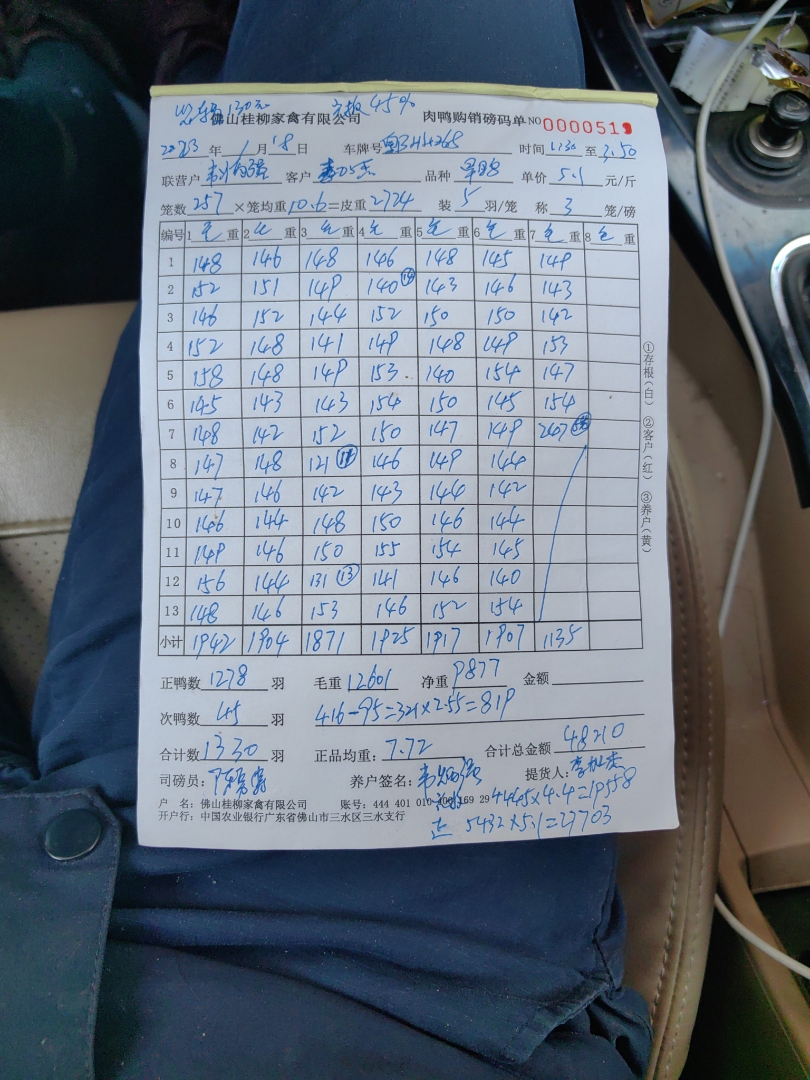 130元 45%
佛山桂柳家禽有限公司 肉鸭购销磅码单 NO 0000519
2023 年 1 月 18 日 车牌号 时间 1:30 至 3:50
联营户 客户 品种 单价 5.1 元/斤
笼数 257 ×笼均重 10.6 =皮重 2724 装 5 羽/笼 称 3 笼/磅
编号 1 毛 重 2 毛 重 3 毛 重 4 毛 重 5 毛 重 6 毛 重 7 毛 重 8 毛 重
1 148 146 148 146 148 145 149
2 152 151 149 140 ⑭ 143 146 143
3 146 152 144 152 150 150 142
4 152 148 141 149 148 149 153
5 158 148 149 153 140 154 147
6 145 143 143 154 150 145 154
7 148 142 152 150 147 149 247
8 147 148 121 146 149 144
9 147 146 142 143 144 142
10 146 144 148 150 146 144
11 149 146 150 155 154 145
12 156 144 131 ⑬ 141 146 140
13 148 146 153 146 152 154
小计 1942 1904 1871 1925 1917 1907 1135
正鸭数 1278 羽 毛重 12601 净重 9877 金额
次鸭数 45 羽 416-95=321×2.55=819
合计数 1330 羽 正品均重: 7.72 合计总金额 48210
司磅员: 养户签名: 提货人:
户 名: 佛山桂柳家禽有限公司 账号: 444 401 010 400 169 29
4445×4.4=19558
开户行: 中国农业银行广东省佛山市三水区三水支行
5432×5.1=27703
①存根(白) ②客户(红) ③养户(黄)